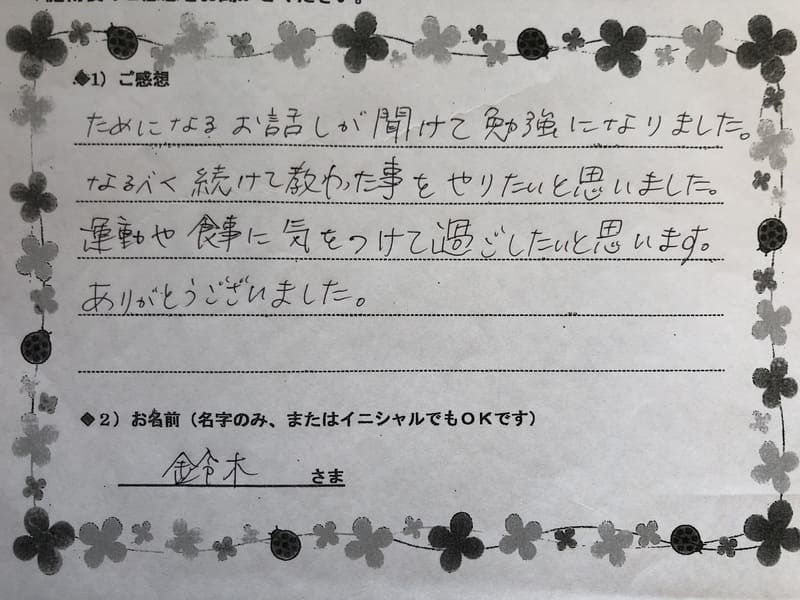 ◆1）ご感想
ためになるお話しが聞けて勉強になりました。
なるべく続けて教わった事をやりたいと思いました。
運動や食事に気をつけて過ごしたいと思います。
ありがとうございました。
◆2）お名前（名字のみ、またはイニシャルでもOKです）
鈴木 さま